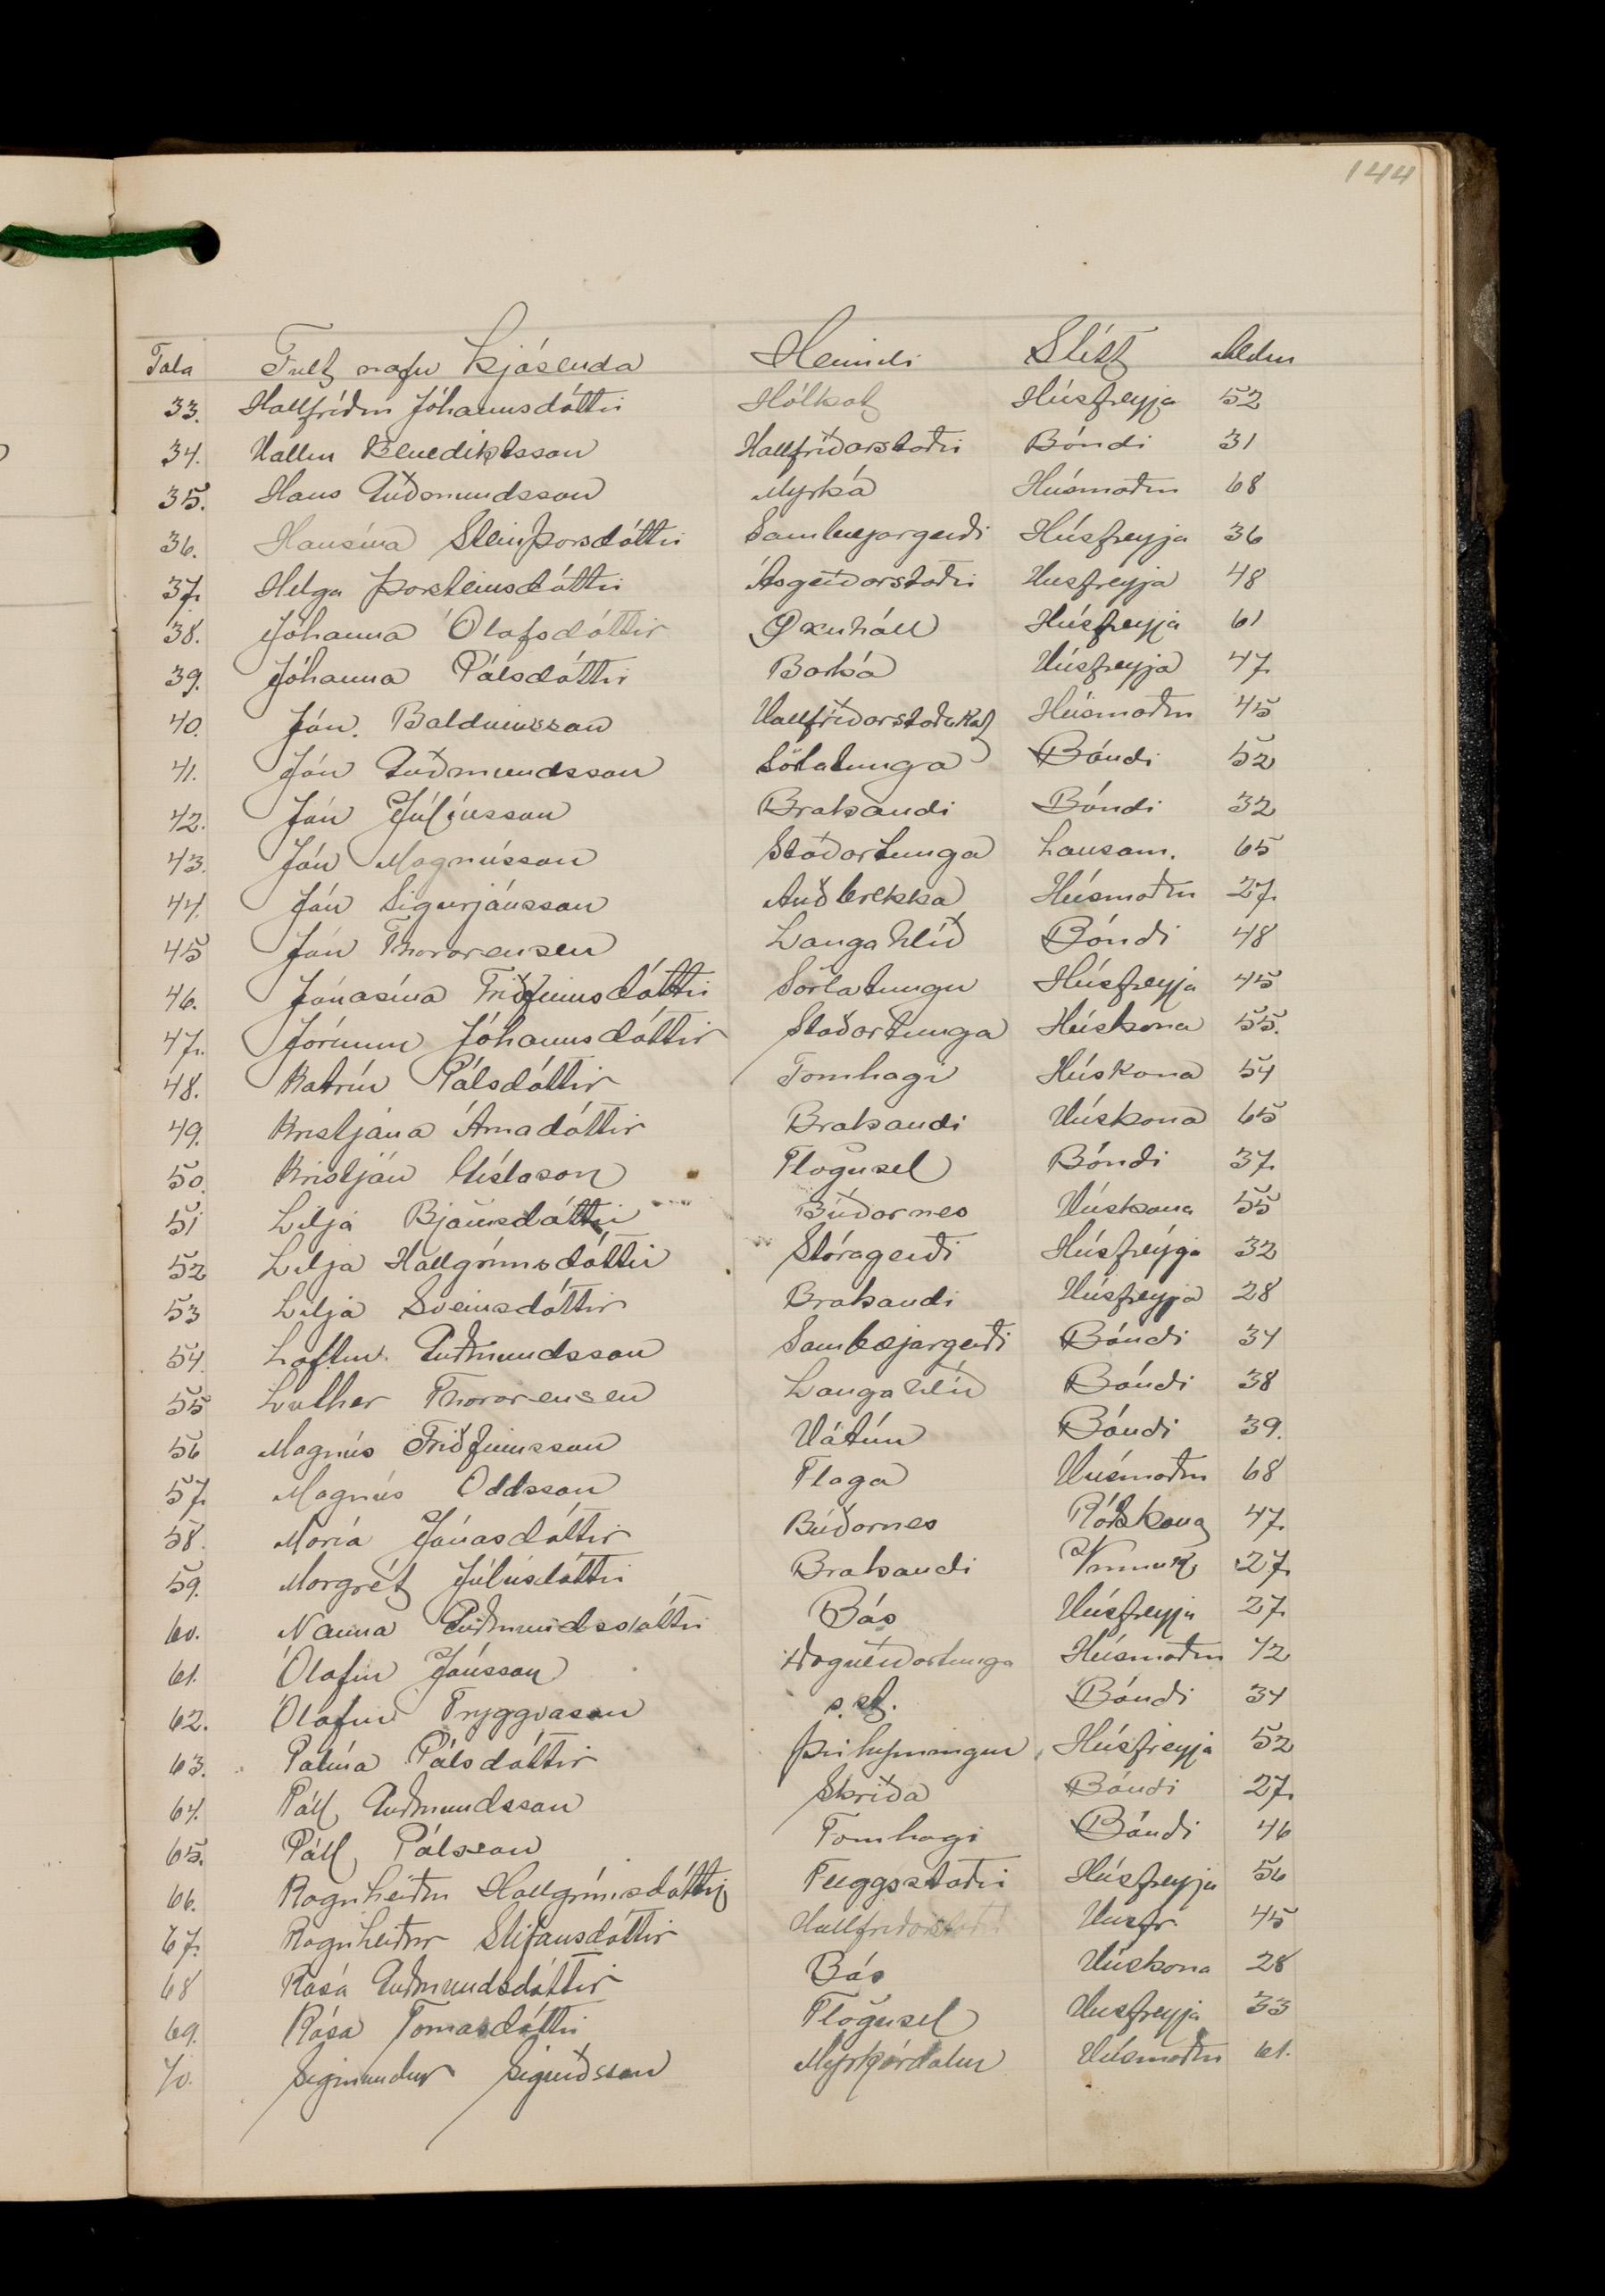 144
Tala Fult nafn kjósenda Heimili Stétt Aldur
33. Hallfríður Jóhannsdóttir Hólkot Húsfreyja 52
34. Hallur Benediktsson Hallfríðarstaðir Bóndi 31
35. Hans Guðmundsson Myrká Húsmaður 68
36. Hansína Steinþorsdóttir Sambæjargerði Húsfreyja 36
37. Helga Þorsteinsdóttir Ásgerðarstaðir Húsfreyja 48
38. Jóhanna Ólafsdóttir Öxnhóll Húsfreyja 61
39. Jóhanna Pálsdóttir Barká Húsfreyja 47
40. Jón Baldvinsson Hallfríðarstaðakot Húsmaður 45
41. Jón Guðmundsson Sörlatunga Bóndi 52
42. Jón Júlíusson Brakandi Bóndi 32
43. Jón Magnússon Staðartunga Lausam. 65
44. Jón Sigurjónsson Auðbrekka Húsmaður 27
45 Jón Thorarensen Langahlíð Bóndi 48
46. Jónasína Friðfinnsdóttir Sörlatunga Húsfreyja 45
47. Jórunn Jóhannsdóttir Staðartunga Húskona 55.
48. Katrín Pálsdóttir Fornhagi Húskona 54
49. Kristjána Árnadóttir Brakandi Húskona 65
50. Kristján Gíslason Flögusel Bóndi 37
51 Lilja Bjarnsdóttir Búðarnes Húskona 55
52 Lilja Hallgrímsdóttir Stóragerði Húsfreyja 32
53 Lilja Sveinsdóttir Brakandi Húsfreyja 28
54. Loftur Guðmundsson Sambæjargerði Bóndi 34
55 Luther Thorarensen Langahlíð Bóndi 38
56 Magnús Friðfinnsson Hátún Bóndi 39.
57. Magnús Oddsson Flaga Húsmaður 68
58. María Jónasdóttir Búðarnes Ráðskona 47
59. Margrét Júlíusdóttir Brakandi Vinnuk 27
60. Nanna Guðmundsdóttir Bás Húsfreyja 27
61. Ólafur Jónsson Húsmaður 72
62. Ólafur Tryggvason s.st. Bóndi 34
63. Pálína Pálsdóttir Þríhyrningur Húsfreyja 52
64. Páll Guðmundsson Skriða Bóndi 27
65. Páll Pálsson Fornhagi Bóndi 46
66. Ragnheiður Hallgrímsdóttir Flöggsstaðir Húsfreyja 56
67. Ragnheiður Stefánsdóttir Hallfríðarstaðir Húsfr. 45
68 Rósa Guðmundsdóttir Bás Húskona 28
69. Rósa Tómasdóttir Flögusel Húsfreyja 33
70. Sigmundur Sigurðsson Myrkárdalur Húsmaður 61.